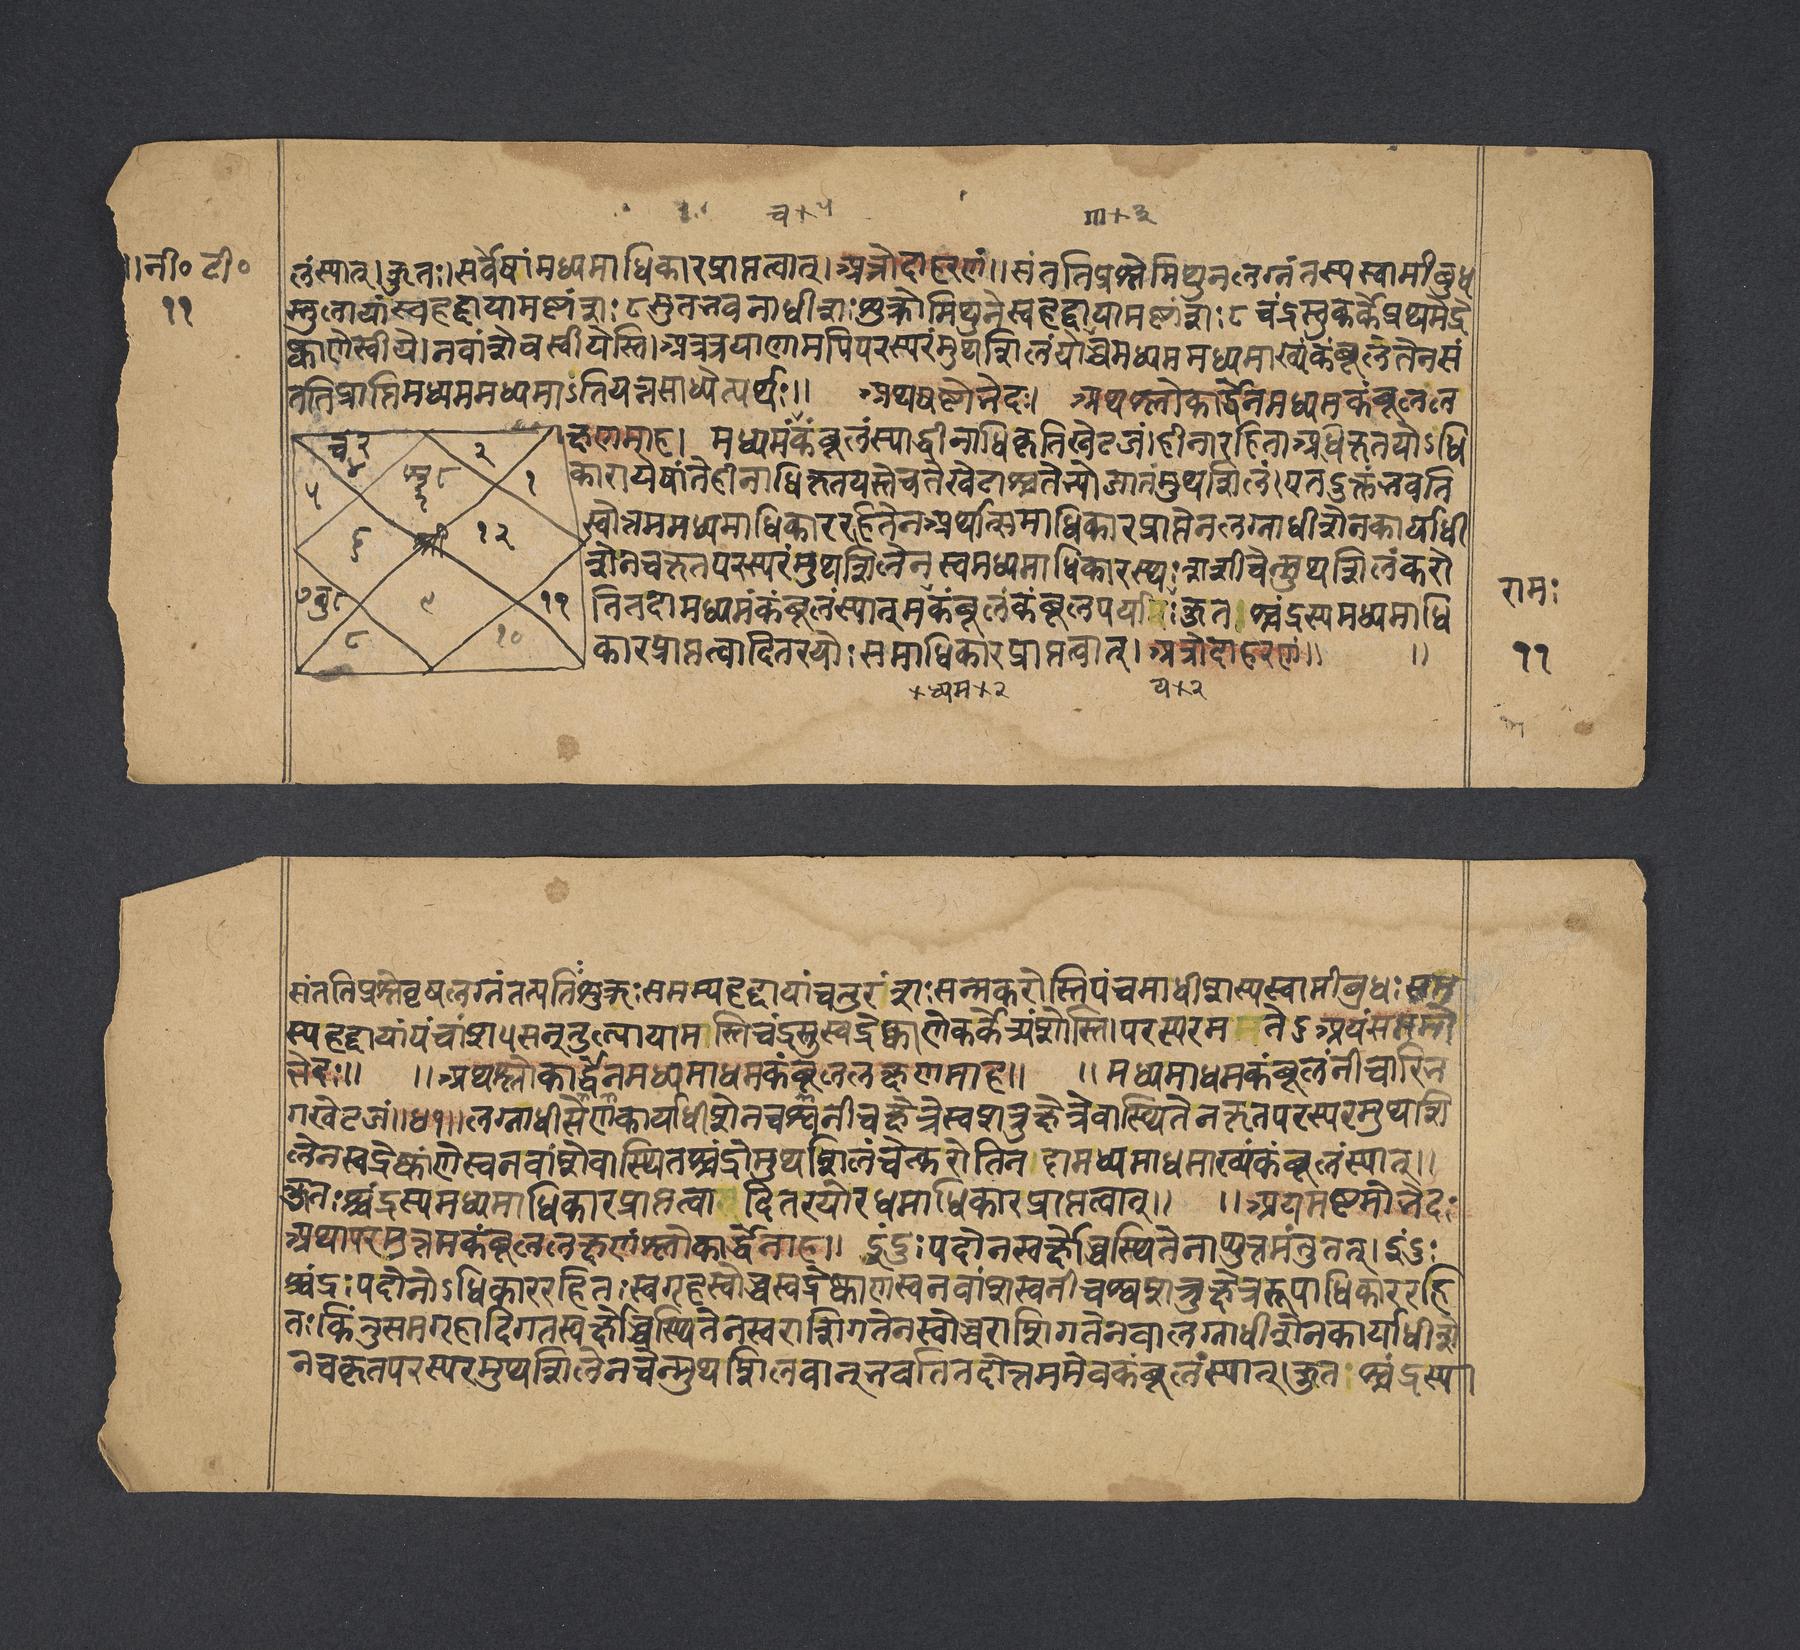 च+५ ण+३
॥नी० टी० लंस्यात्।कुतः।सर्वेषांमध्यमाधिकारप्राप्तत्वात्।अत्रोदाहरणं॥संततिप्रश्नेमिथुनलग्नंतस्यस्वामीबुध
११ स्तुलायांस्वहद्दायामष्टांशः८सुतभवनाधीशःशुक्रोमिथुनेस्वहद्दायामष्टांशः८चंद्रस्तुकर्केप्रथमेद्रे
ष्काणेस्वीये।नवांशेचस्वीयेस्ति।अत्रत्रयाणामपिपरस्परंमुथशिलंमध्यममध्यमाख्यंकंबूलंतेनसं
ततिप्राप्तिमध्यममध्यमाऽतियत्नसाध्येत्यर्थः॥ अथषष्ठोभेदः। अथश्लोकार्द्धेनमध्यमकंबूलल
क्षणमाह। मध्यमंकंबूलंस्याद्धीनाधिकृतिखेटजं।हीनारहिताअधिकृतयोऽधि
कारायेषांतेहीनाधिकृतयस्तेचतेखेटाश्चतेभ्योजातंमुथशिलं।एतदुक्तंभवति
स्वोत्तममध्यमाधिकाररहितेनअर्थात्समाधिकारप्राप्तेनलग्नाधीशेनकार्याधी
शेनचकृतपरस्परंमुथशिलेनस्वमध्यमाधिकारस्थःशशीचेन्मुथशिलंकरो
तितदामध्यमंकंबूलंस्यात् कंबूलंकंबूल कुतश्चंद्रस्यमध्यमाधि
कारप्राप्तत्वादितरयोःसमाधिकारप्राप्तत्वात्।अत्रोदाहरणं॥ ॥
रामः
११
+ध्यम+२ य+२
चं २
४
५
शु८
३
२
१
६
श्री
१२
७बु८
९
११
८
१०
संततिप्रश्नेवृषलग्नंतत्पतिःशुक्रःसमस्यहद्दायांचतुरंशःसन्मकरोस्तिपंचमाधीशस्यस्वामीबुधःसम
स्यहद्दायांपंचांशः५सन्तुलायामस्तिचंद्रस्तुस्वद्रेष्काणेकर्केत्र्यंशोस्ति।परस्पर अयंसप्तमो
भेदः॥ ॥अथश्लोकार्द्धेनमध्यमाधमकंबूललक्षणमाह॥ ॥मध्यमाधमकंबूलंनीचारिभ
गखेटजं॥ लग्नाधीसेणकार्याधीशेनचश्वनीचक्षेत्रेस्वशत्रुक्षेत्रेवास्थितेनकृतपरस्परमुथशि
लेनस्वद्रेष्काणेस्वनवांशेवास्थितश्चंद्रोमुथशिलंचेत्करोतितदामध्यमाधमाख्यंकंबूलंस्यात्॥
कुतःश्चंद्रस्यमध्यमाधिकारप्राप्तत्वादितरयोरधमाधिकारप्राप्तत्वात्॥ ॥अयमष्टमोभेदः
अथापरमुत्तमकंबूललक्षणंश्लोकार्द्धेनाह॥ इंदुःपदोनस्वर्क्षोच्चस्थितेनाप्युत्तमंतुतत्।इंदुः
श्चंद्रःपदोनोऽधिकाररहितःस्वगृहस्वोच्चस्वद्रेष्काणस्वनवांशस्वनीचश्वशत्रुक्षेत्ररूपाधिकाररहि
तःकिंतुसमगृहादिगतस्वर्क्षोच्चस्थितेनस्वराशिगतेनस्वोच्चराशिगतेनवालग्नाधीशेनकार्याधीशे
नचकृतपरस्परमुथशिलेनचेन्मुथशिलवान्भवतितदोत्तममेवकंबूलंस्यात्।कुतःश्चंद्रस्य।